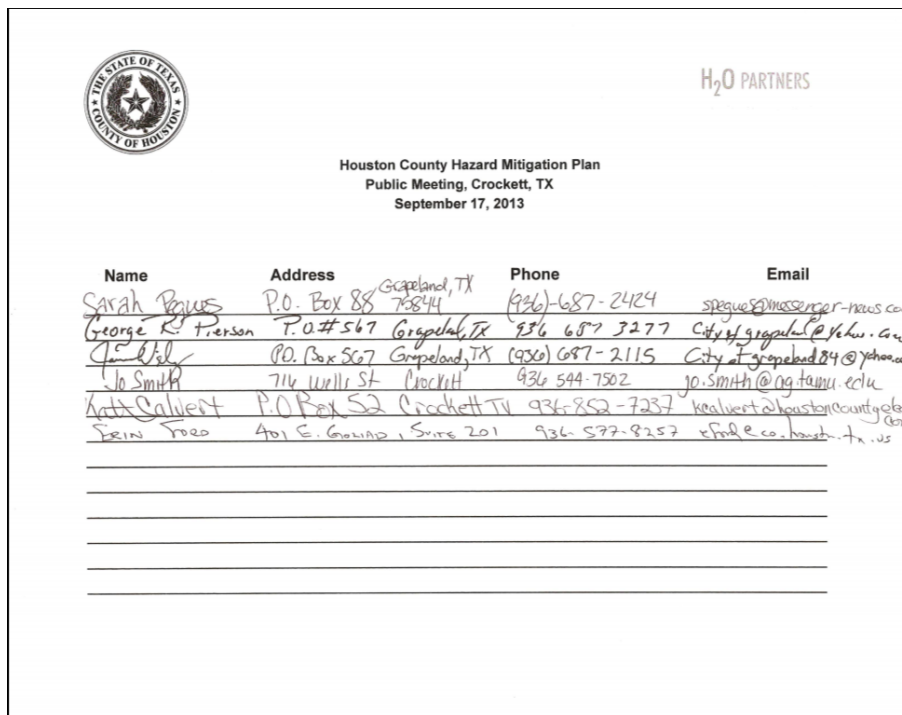 THE STATE OF TEXAS
COUNTY OF HOUSTON
H2O PARTNERS
Houston County Hazard Mitigation Plan
Public Meeting, Crockett, TX
September 17, 2013
Name Address Phone Email
Sarah Pegues P.O. Box 88 Grapeland, TX 75844 (936)-687-2424 spegues@messenger-news.co
George R. Pierson P.O.#567 Grapeland, TX 936 687 3277
P.O. Box 567 Grapeland, TX (936) 687-2115 City of grapeland84@yahoo.co
Jo Smith 716 Wells St Crockett 936 544-7502 jo.smith@ag.tamu.edu
Katt Calvert P.O Box 52 Crockett TX 936-852-7237
ERIN FORD 401 E. GOLIAD, SUITE 201 936-577-8257 eford@co.houston.tx.us